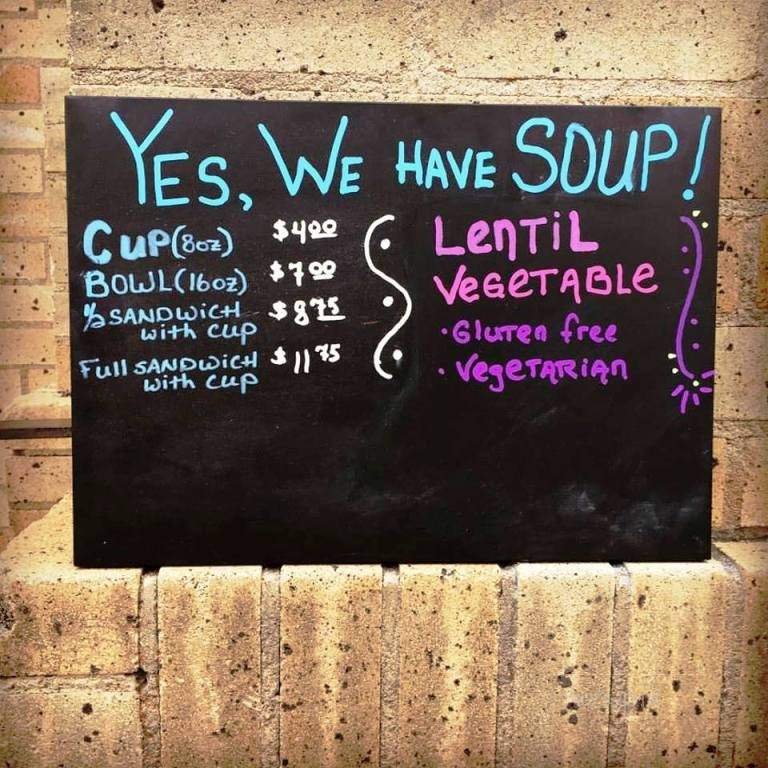 YES, WE HAVE SOUP!
CUP(8oz) $4.00
BOWL(16oz) $7.00
½ SANDWICH with cup $8.75
Full SANDWICH with cup $11.75
LenTiL
VEGETABLE
• Gluten free
• VegeTARIAn